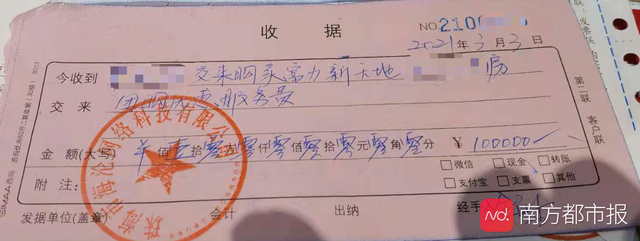 收 据
NO 2100
2021年3月3日
今收到 交来购买富力新天地 房
交来 团购优惠服务费
金额(大写) 羊佰壹拾零万零仟零佰零拾零元零角零分 ¥ 100000—
□微信 □现金 □转账
附注: □支付宝 □支票 □其他
发据单位(盖章) 会计 出纳 经手
第二联 客户联
SIMAA西玛
网络科技有限公司
nd. 南方都市报